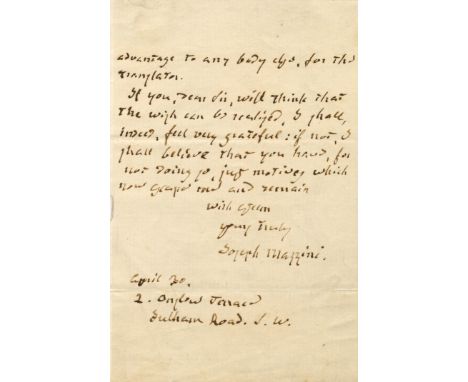 advantage to any body else, for the
translator.
If you, dear Sir, will think that
the wish can be realised, I shall,
indeed, feel very grateful: if not, I
shall believe that you have, for
not doing so, just motives which
now escape me and remain
with esteem
yours truly
Joseph Mazzini.
April 30.
2. Onslow Terrace
Fulham Road. S. W.